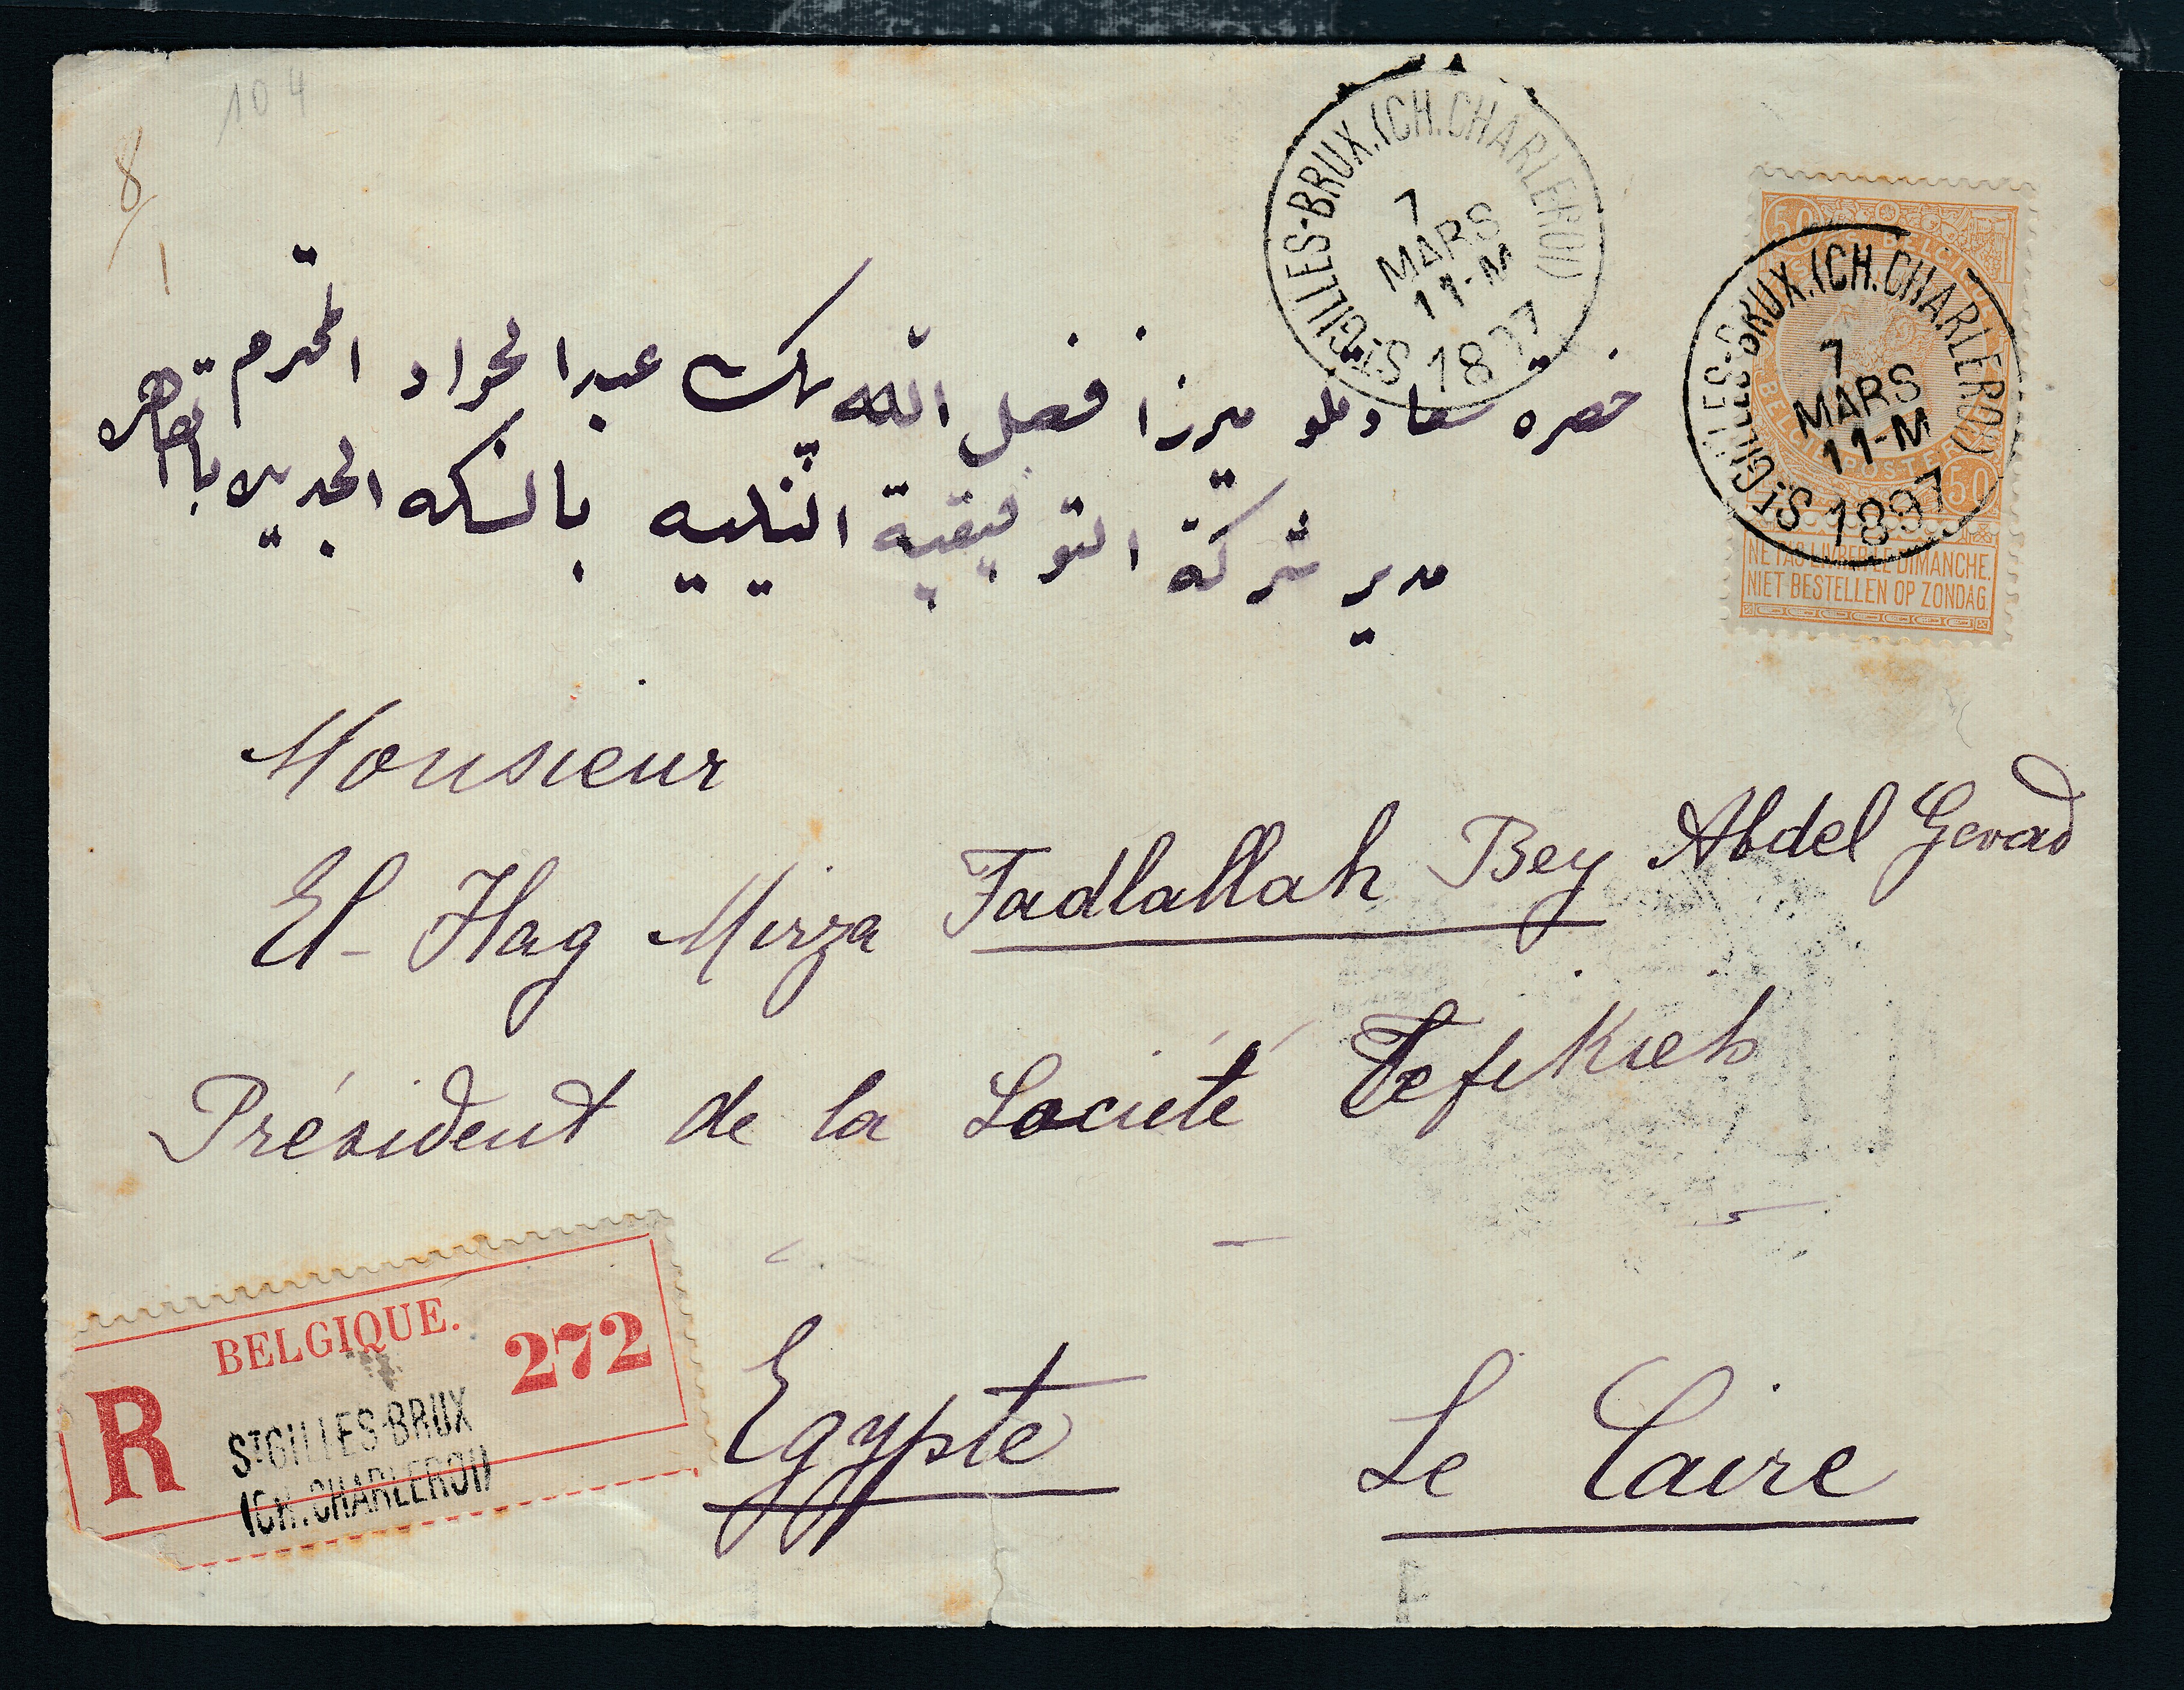 104
8/1
ST GILLES-BRUX.(CH.CHARLEROI)
7
MARS
11-M
1897
50
50
ST GILLES-BRUX.(CH.CHARLEROI)
7
MARS
11-M
1897
NE PAS LIVRER LE DIMANCHE.
NIET BESTELLEN OP ZONDAG.
حضرة سعادتلو ميرزا فضل الله بيك عبد الجواد المحترم
مدير شركة التوفيقية النيلية بالسكه الجديده بالقاهره
Monsieur
El-Hag Mirza Fadlallah Bey Abdel Gevad
Président de la Société Tefikieh
Egypte Le Caire
BELGIQUE.
R 272
ST GILLES-BRUX
(CH.CHARLEROI)